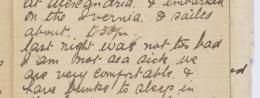 at Alexandria. & embarked
on the Ivernia, & sailed
about. 6.30pm.
last night was not too bad
I am not sea sick, we
are very comfortable. &
have bunks to sleep in